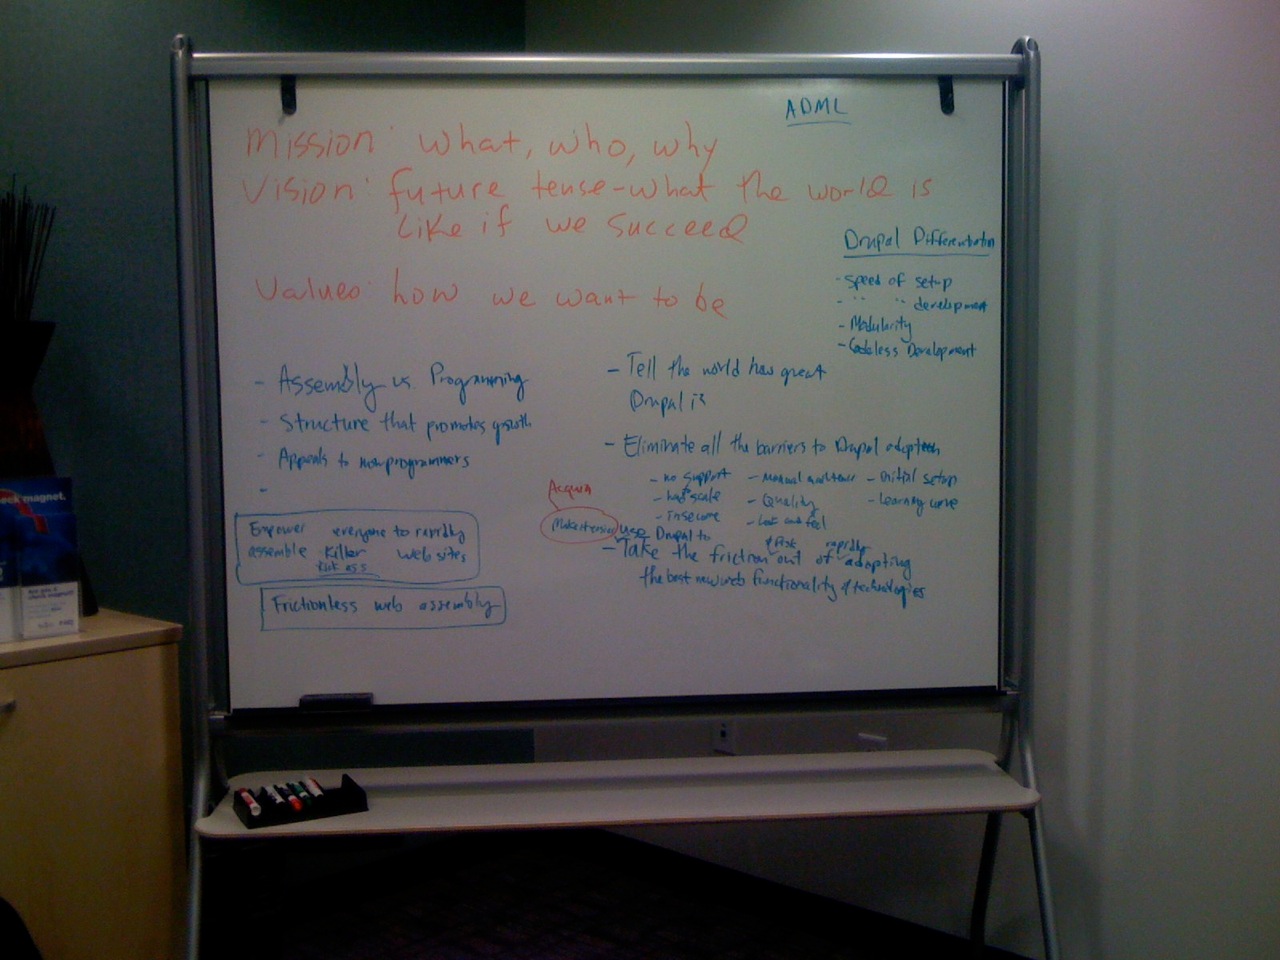 ADML
Mission: What, who, why
Vision: future tense-what the world is
Like if we succeed
Values: how we want to be
Drupal Differentiation
- Speed of setup
- " " development
- Modularity
- Codeless Development
- Assembly vs Programming
- Structure that promotes growth
- Appeals to nonprogrammers
-
Empower everyone to rapidly
assemble Killer web sites
Kick ass
Frictionless web assembly
- Tell the world how great
Drupal is
- Eliminate all the barriers to Drupal adoption
- no support
- scale
- insecure
- Quality
- Look and feel
- initial setup
- learning curve
Acquia
use Drupal to
& risk rapidly
- Take the friction out of adopting
the best new web functionality & technologies
eek magnet.